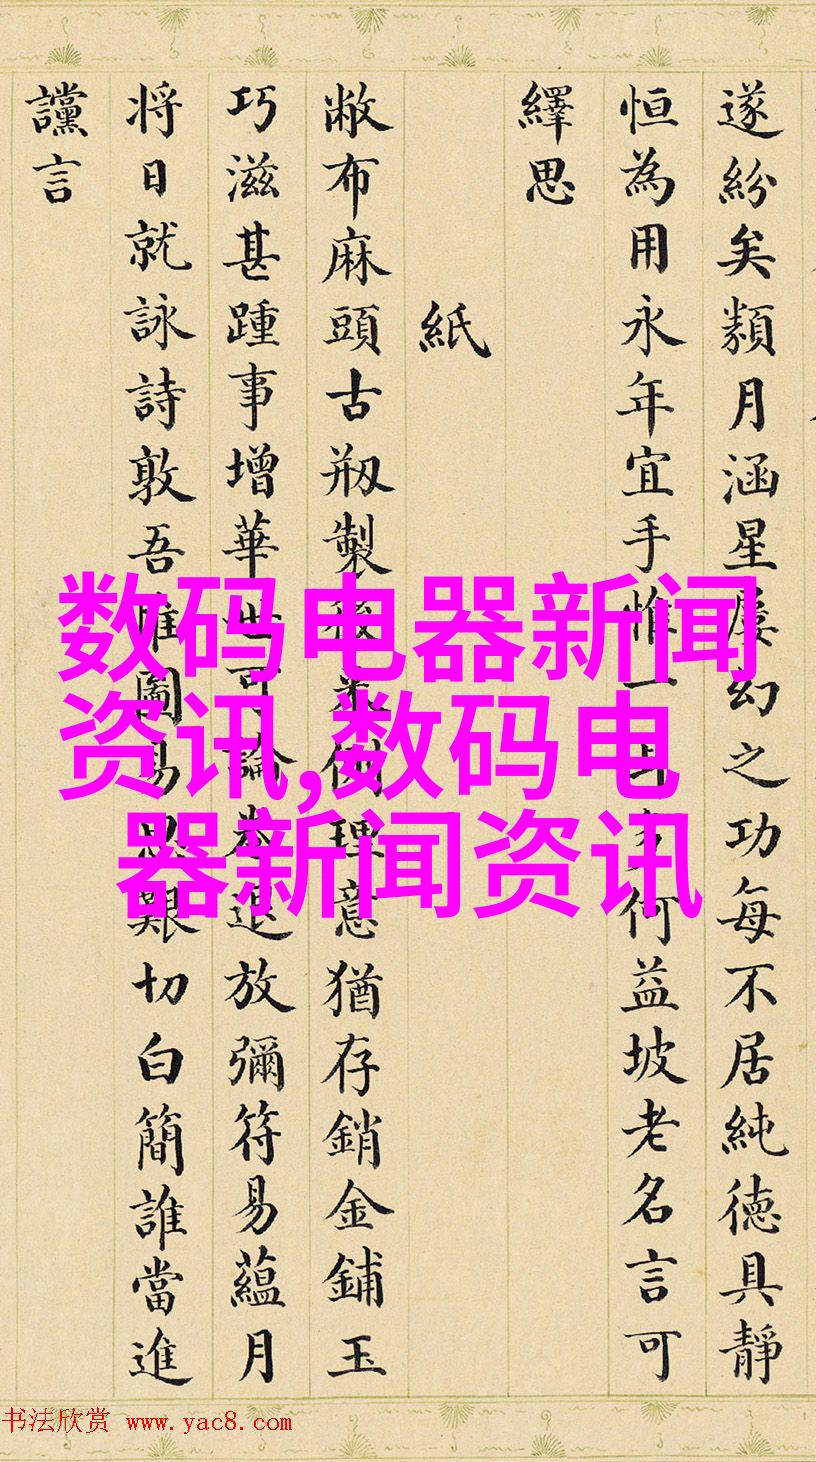 遂紛矣類月涵星屢幻之功每不居純德具靜
恒為用永年宜手惟一何益坡老名言可
繹思
紙
敝布麻頭古剏製後來例理意猶存銷金鋪玉
巧滋甚踵事增華也可論卷退放彌符易蘊月
将日就詠詩敦吾惟圖易思艱切白簡誰當進
讜言
数码电器新闻
资讯,数码电
器新闻资讯
书法欣赏 www.yac8.com